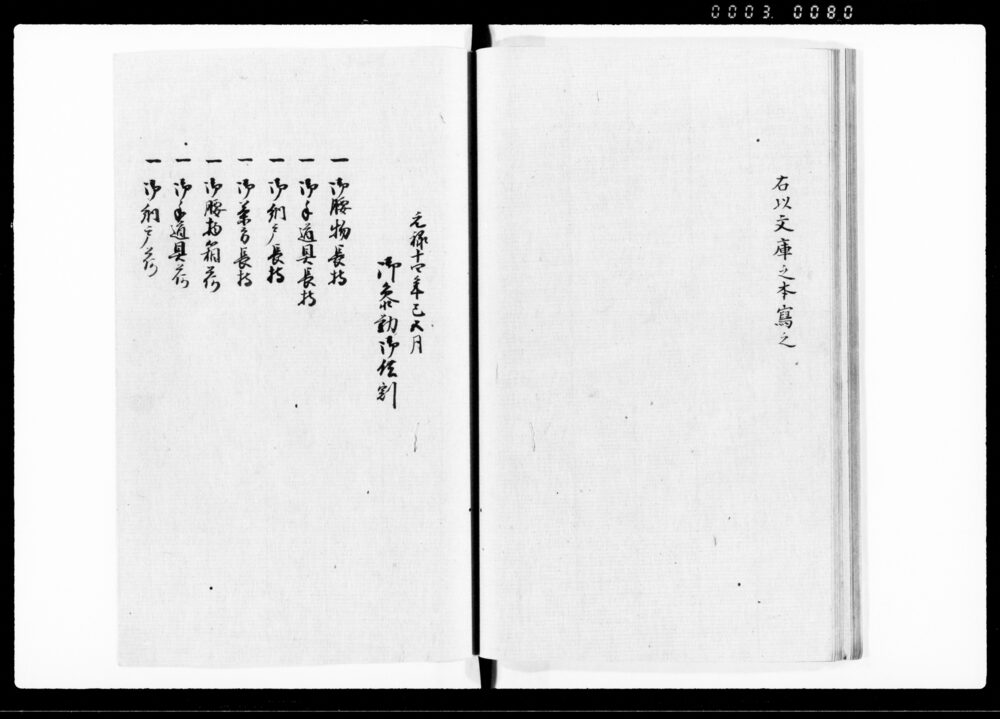 0003. 0080
右以文庫之本寫之
元禄十四年巳六月
御参勤御供割
一 御腰物長持
一 御手道具長持
一 御納戸長持
一 御茶方長持
一 御腰物箱荷
一 御手道具荷
一 御納戸荷